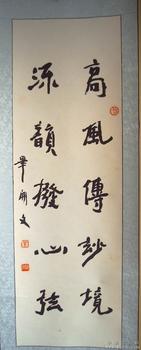 高風傳妙境
流韻撥心弦
畢開文